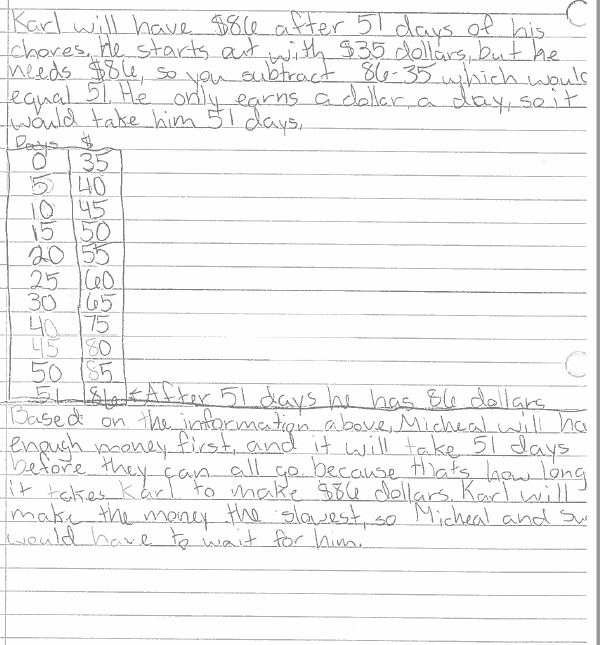 Karl will have $86 after 51 days of his
chores. He starts out with $35 dollars, but he
needs $86, so you subtract 86-35 which would
equal 51. He only earns a dollar a day, so it
would take him 51 days.
Days $
0 35
5 40
10 45
15 50
20 55
25 60
30 65
40 75
45 80
50 85
51 86 ← After 51 days he has 86 dollars
Based on the information above, Micheal will ha
enough money first, and it will take 51 days
before they can all go because thats how long
it takes Karl to make $86 dollars. Karl will
make the money the slowest, so Micheal and Su
would have to wait for him.